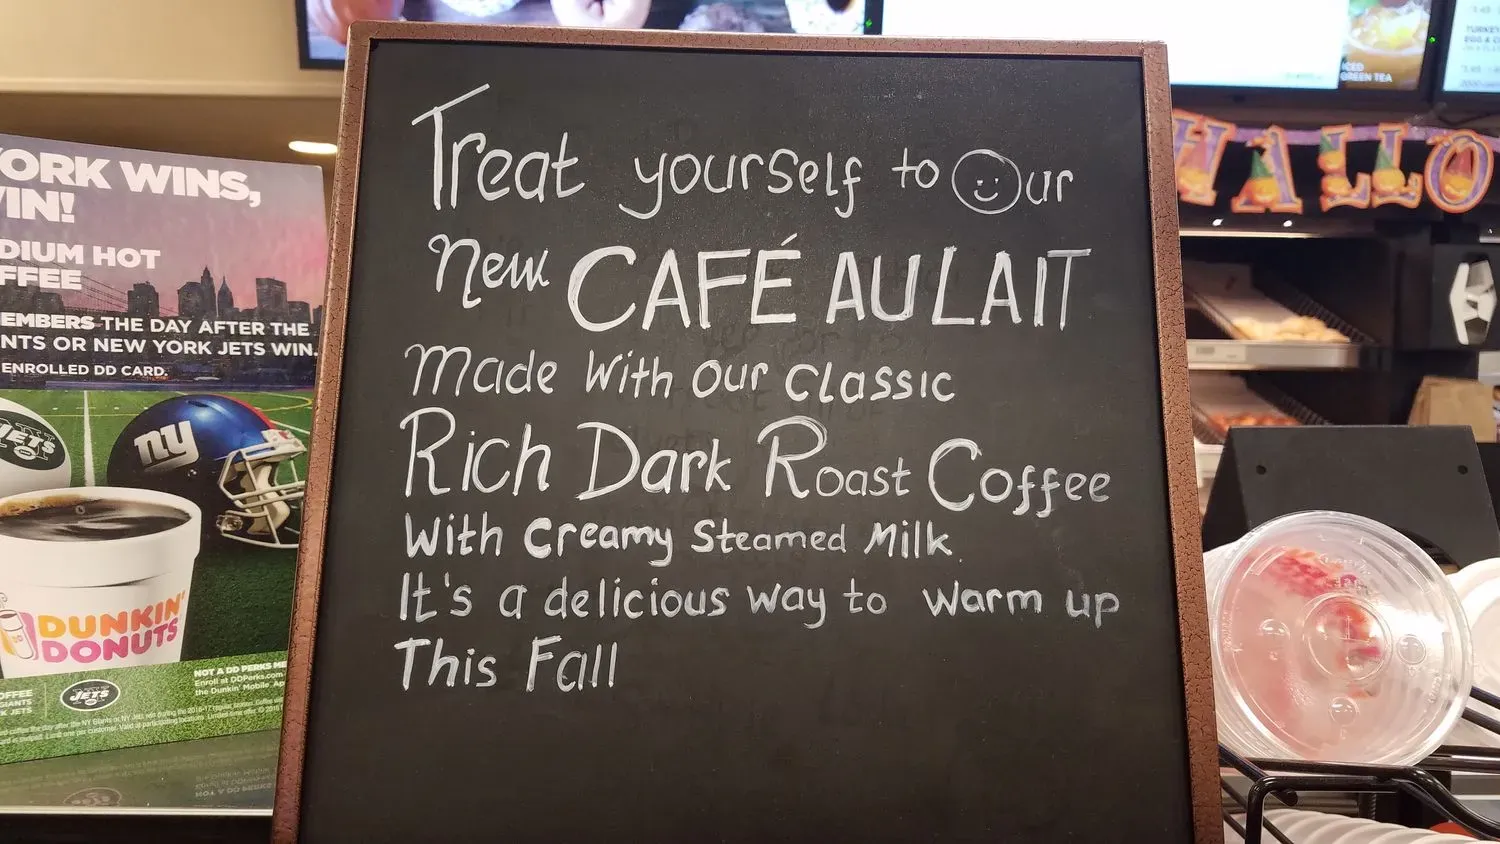 Treat yourself to Our
New CAFÉ AU LAIT
Made With our classic
Rich Dark Roast Coffee
With Creamy Steamed Milk.
It's a delicious way to warm up
This Fall
YORK WINS,
WIN!
DIUM HOT
FFEE
EMBERS THE DAY AFTER THE
NTS OR NEW YORK JETS WIN.
ENROLLED DD CARD.
JETS
ny
DUNKIN'
DONUTS
NOT A DD PERKS ME
Enroll at DDPerks.com
the Dunkin' Mobile Ap
OFFEE
GIANTS
K JETS
JETS
HALLO
ICED
GREEN TEA
TURKEY
EGG &